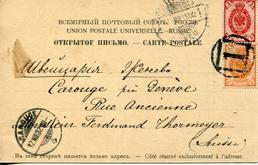 ВСЕМІРНЫЙ ПОЧТОВЫЙ СОЮЗЪ. РОССІЯ.
UNION POSTALE UNIVERSELLE. RUSSIE.
ОТКРЫТОЕ ПИСЬМО. — CARTE POSTALE
Швейцарія Женева
Carouge près Genève
Rue Ancienne
Monsieur Ferdinand Thormeyer
(Suisse)
CAROUGE
На этой сторонѣ пишется только адресъ. — Côté réservé exclusivement à l'adresse.